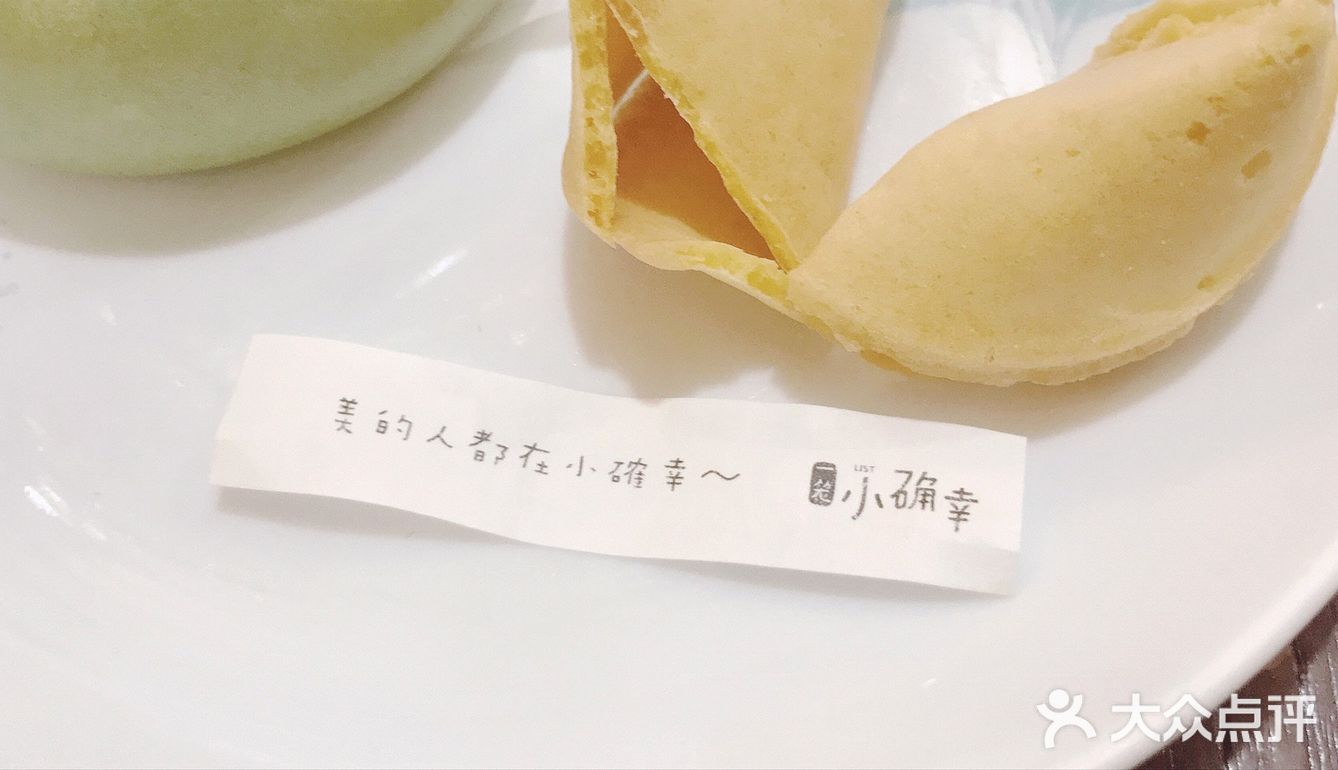 美的人都在小確幸～
一笼 LIST 小确幸
大众点评